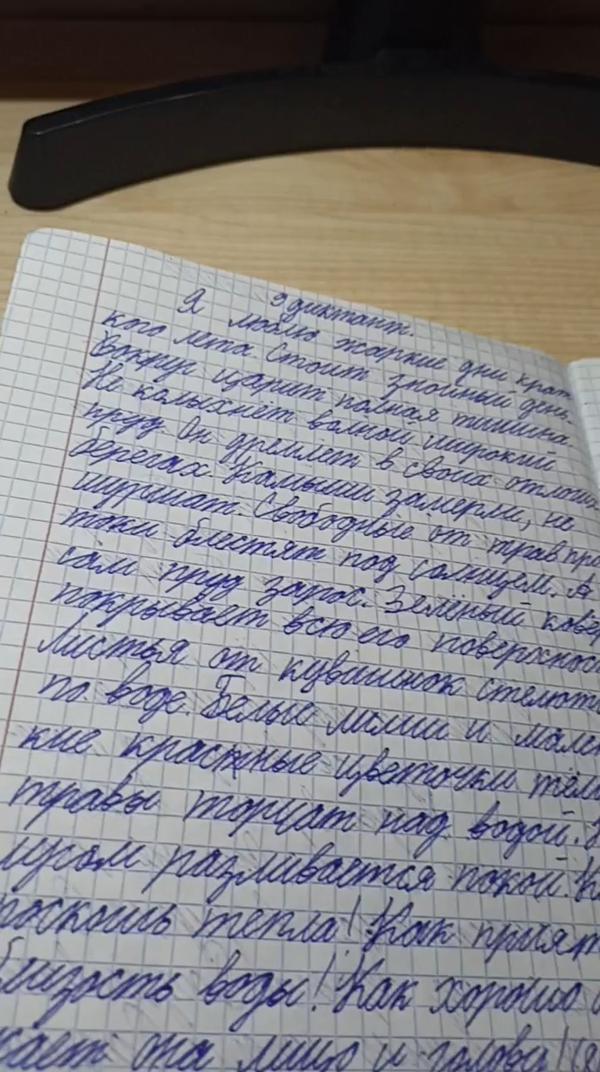 9 диктант.
Я люблю жаркие дни крат
кого лета. Стоит знойный день.
Вокруг царит полная тишина
Не колыхнёт волной широкий
пруд. Он дремлет в своих отлогих
берегах. Камыши замерли, не
шуршат. Свободные от трав про
токи блестят под солнцем. А
сам пруд зарос. Зелёный ковёр
покрывает всю его поверхнос
Листья от кувшинок стелют
по воде. Белые лилии и мален
кие красные цветочки тём
травы торчат над водой.
лугом разливается покой.
роскошь тепла! Как прият
близость воды! Как хорошо
она лицо и голову!